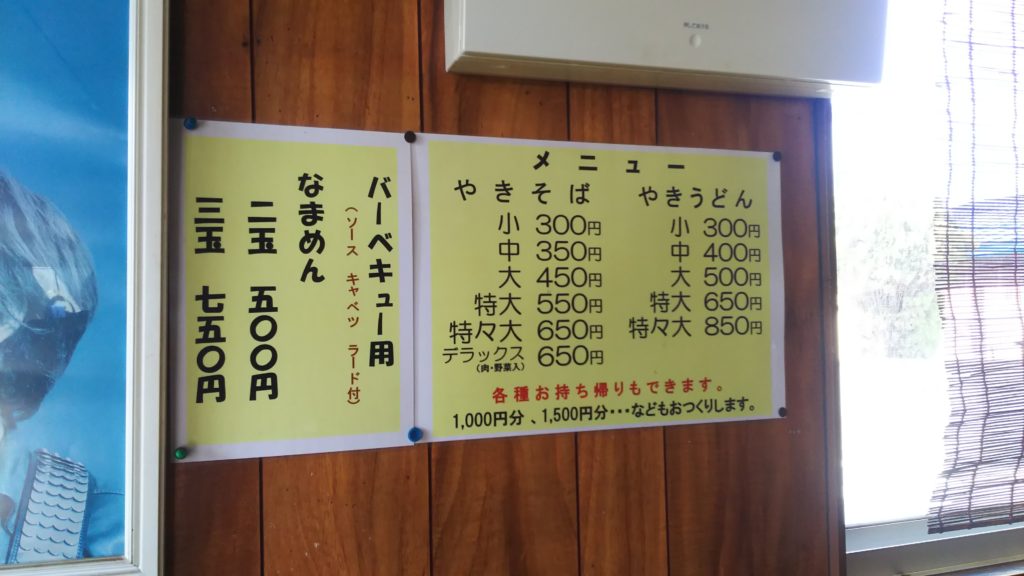 メニュー
やきそば
小 300円
中 350円
大 450円
特大 550円
特々大 650円
デラックス 650円
(肉・野菜入)
やきうどん
小 300円
中 400円
大 500円
特大 650円
特々大 850円
各種お持ち帰りもできます。
1,000円分、1,500円分・・・などもおつくりします。
バーベキュー用
(ソース キャベツ ラード付)
なまめん
二玉 五〇〇円
三玉 七五〇円